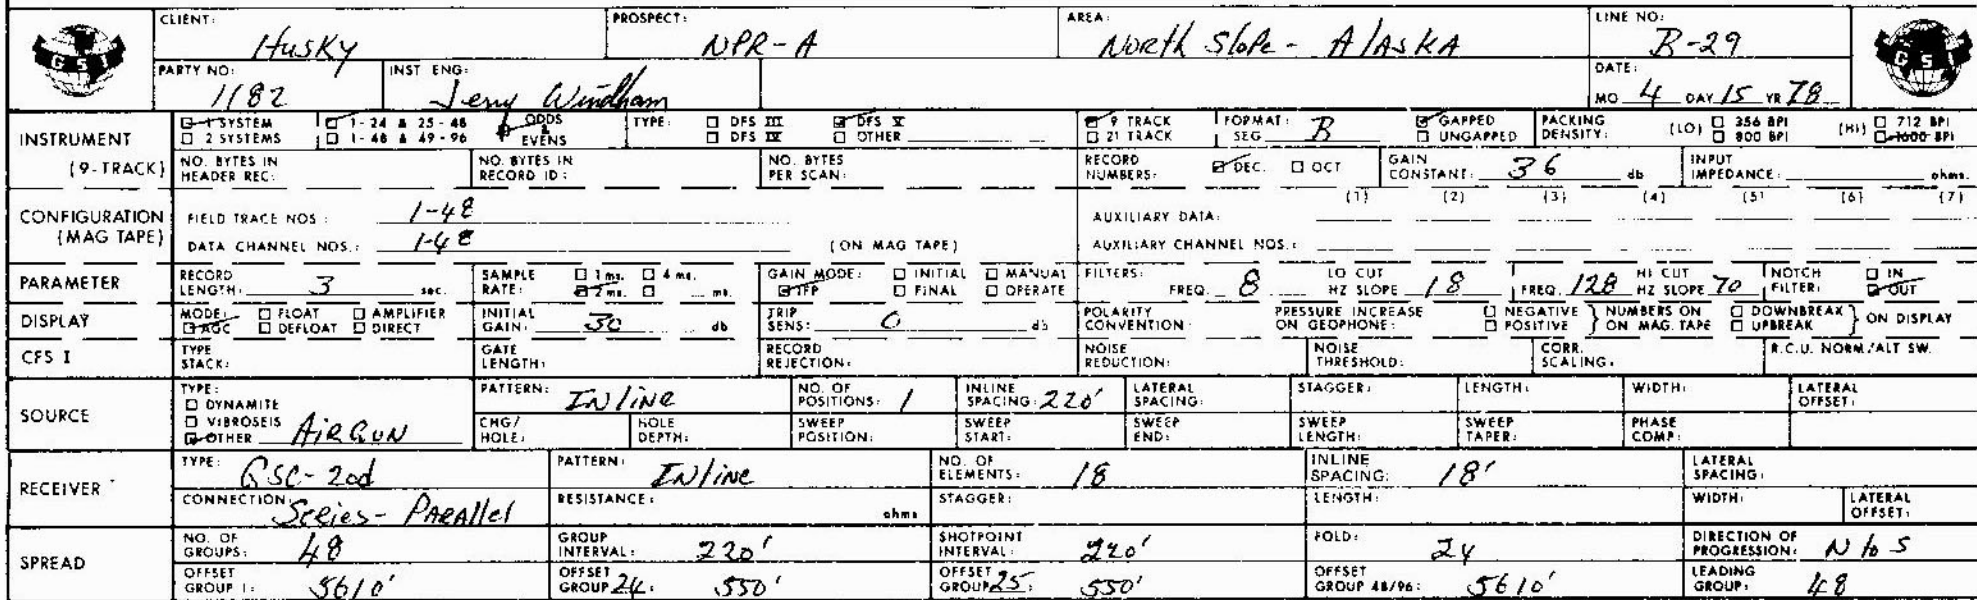 CLIENT: Husky PROSPECT: NPR-A AREA: North Slope - Alaska LINE NO: B-29
GSI GSI
PARTY NO: 1182 INST ENG: Jerry Windham DATE: MO 4 DAY 15 YR 78
INSTRUMENT (9-TRACK)
1 SYSTEM 1-24 & 25-48 ODDS & EVENS TYPE: DFS III DFS V 9 TRACK FORMAT: SEG B GAPPED PACKING DENSITY: (LO) 356 BPI (HI) 712 BPI
2 SYSTEMS 1-48 & 49-96 DFS IV OTHER 21 TRACK UNGAPPED 800 BPI 1600 BPI
NO. BYTES IN HEADER REC: NO. BYTES IN RECORD ID: NO. BYTES PER SCAN: RECORD NUMBERS: DEC. OCT GAIN CONSTANT: 36 db INPUT IMPEDANCE: ohms.
CONFIGURATION (MAG TAPE)
FIELD TRACE NOS: 1-48 AUXILIARY DATA: (1) (2) (3) (4) (5) (6) (7)
DATA CHANNEL NOS.: 1-48 (ON MAG TAPE) AUXILIARY CHANNEL NOS.:
PARAMETER RECORD LENGTH: 3 sec. SAMPLE RATE: 1 ms. 4 ms. 2 ms. ms. GAIN MODE: INITIAL MANUAL IFP FINAL OPERATE FILTERS: FREQ. 8 LO CUT HZ SLOPE 18 FREQ. 128 HI CUT HZ SLOPE 70 NOTCH FILTER: IN OUT
DISPLAY MODE: FLOAT AMPLIFIER AGC DEFLOAT DIRECT INITIAL GAIN: 30 db TRIP SENS: 0 db POLARITY CONVENTION: PRESSURE INCREASE ON GEOPHONE: NEGATIVE POSITIVE NUMBERS ON ON MAG. TAPE DOWNBREAK UPBREAK ON DISPLAY
CFS I TYPE STACK: GATE LENGTH: RECORD REJECTION: NOISE REDUCTION: NOISE THRESHOLD: CORR. SCALING: R.C.U. NORM./ALT SW.
SOURCE TYPE: DYNAMITE VIBROSEIS OTHER AIRGUN
PATTERN: INline NO. OF POSITIONS: 1 INLINE SPACING: 220' LATERAL SPACING: STAGGER: LENGTH: WIDTH: LATERAL OFFSET:
CHG/HOLE: HOLE DEPTH: SWEEP POSITION: SWEEP START: SWEEP END: SWEEP LENGTH: SWEEP TAPER: PHASE COMP:
RECEIVER TYPE: GSC-20d PATTERN: INline NO. OF ELEMENTS: 18 INLINE SPACING: 18' LATERAL SPACING:
CONNECTION: Series-Parallel RESISTANCE: ohms STAGGER: LENGTH: WIDTH: LATERAL OFFSET:
SPREAD NO. OF GROUPS: 48 GROUP INTERVAL: 220' SHOTPOINT INTERVAL: 220' FOLD: 24 DIRECTION OF PROGRESSION: N to S
OFFSET GROUP 1: 5610' OFFSET GROUP 24: 550' OFFSET GROUP 25: 550' OFFSET GROUP 48/96: 5610' LEADING GROUP: 48